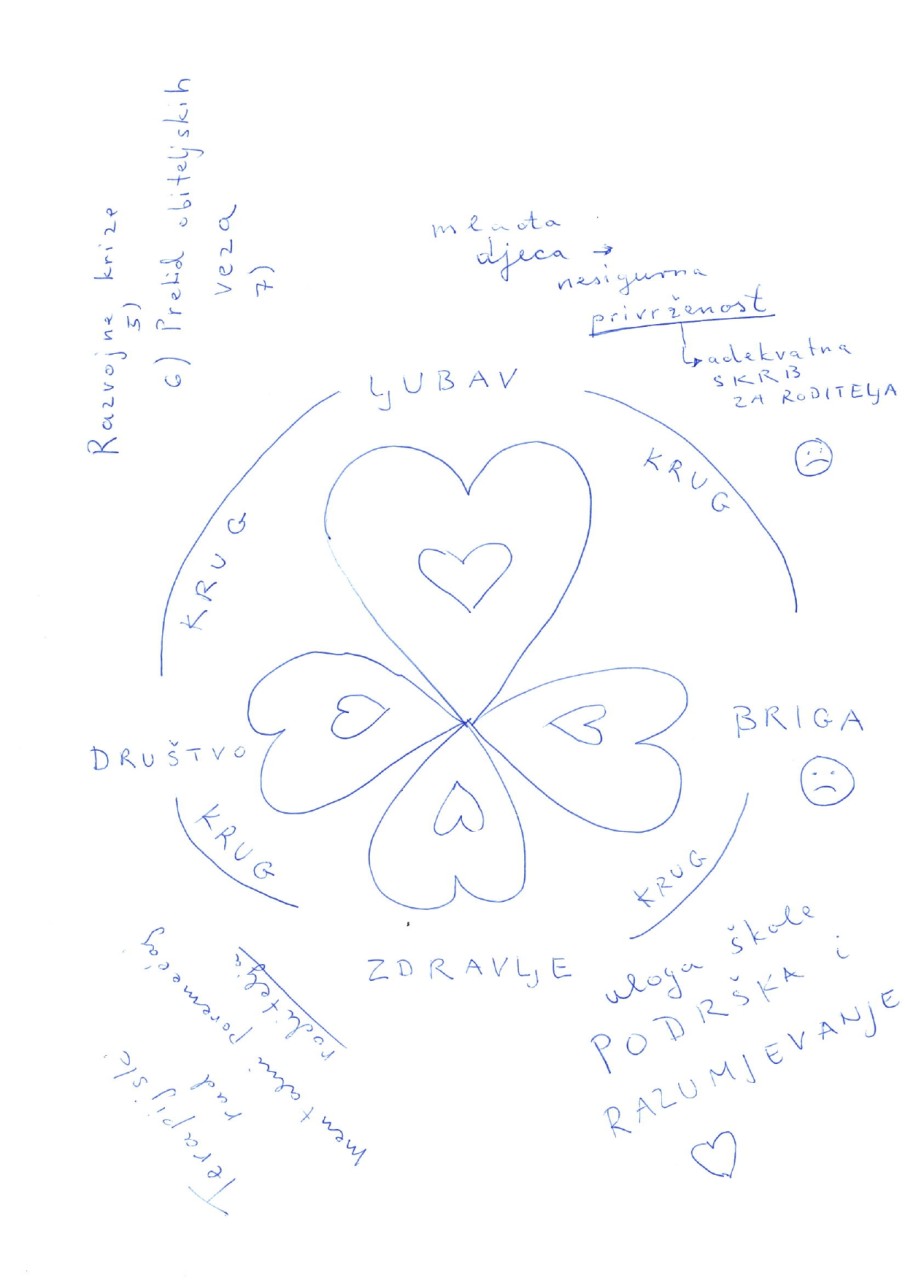 Razvojne krize
5)
6) Prekid obiteljskih
veza
7)
djeca →
nesigurna
privrženost
adekvatna
SKRB
ZA RODITELJA
LJUBAV
KRUG
KRUG
BRIGA
DRUŠTVO
KRUG
KRUG
ZDRAVLJE
uloga škole
PODRŠKA i
RAZUMJEVANJE
mentalni poremećaj
roditelja
Terapijski
rad